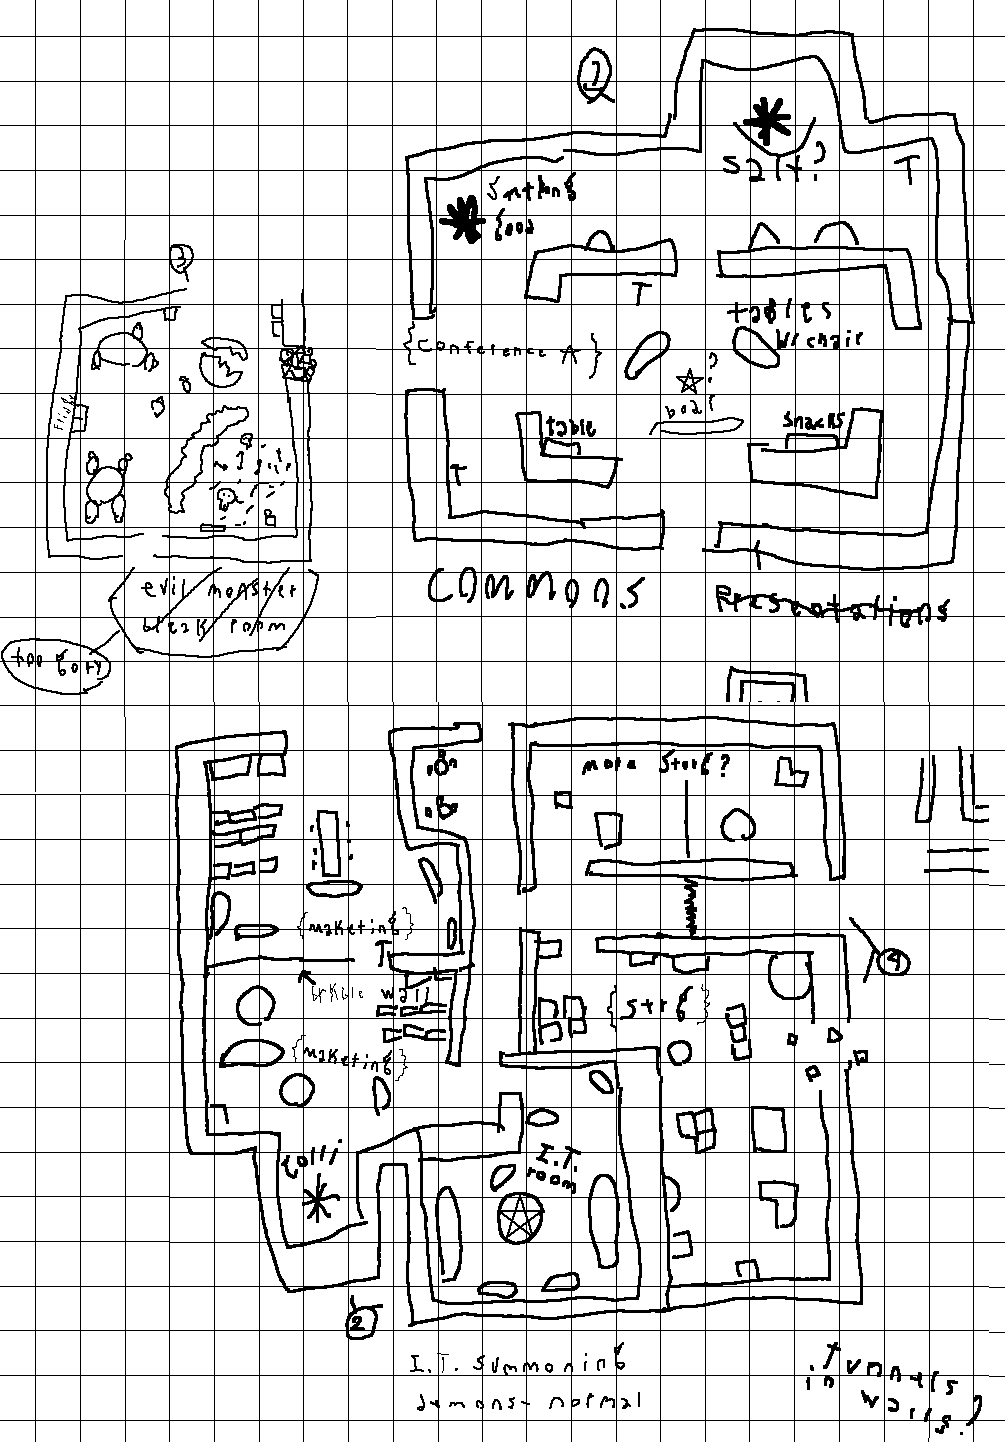 1
salt?
T
smthng
good
T
3
tables
w/ chair
{conference A}
?
boar
Fridge
table
snacks
T
COMMONS
Presentations
evil monster
break room
too gory
more strg?
{maketing}
T
4
brkble wall
{strg}
{maketing}
golli
I.T.
room
2
I.T. summoning
demons- normal
Tunnels
in walls?